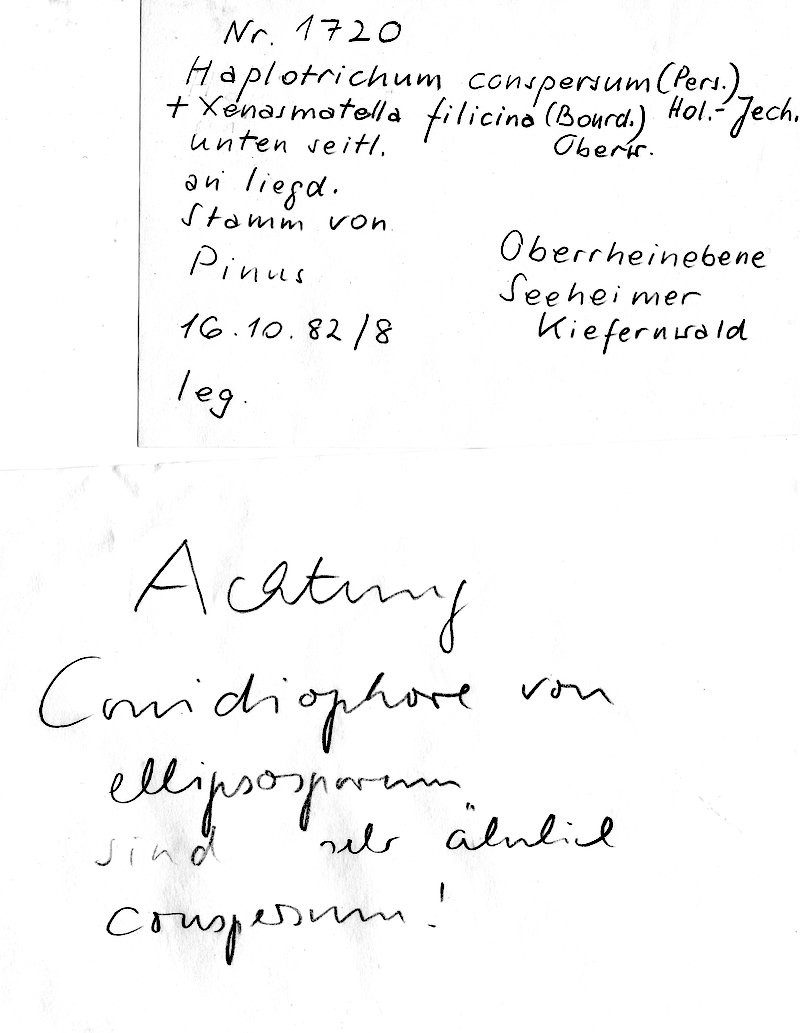 Nr. 1720
Haplotrichum conspersum (Pers.) Hol.-Jech.
+ Xenasmatella filicina (Bourd.) Oberw.
unten seitl.
an liegd.
Stamm von
Pinus
16.10.82/8
leg.
Oberrheinebene
Seeheimer
Kiefernwald
Achtung
Conidiophore von
ellipsosporum
sind sehr ähnlich
conspersum!